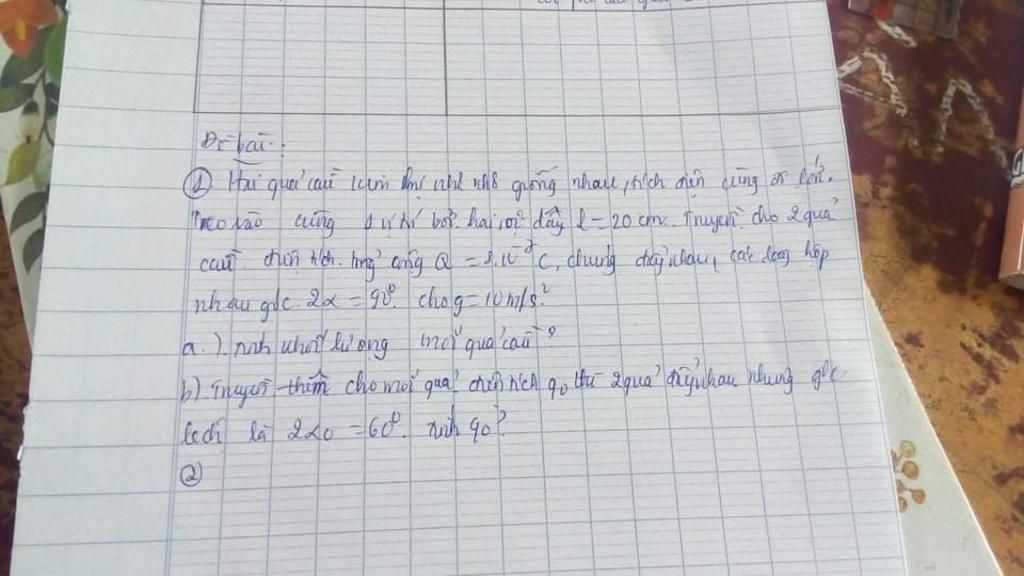 Đề bài:
① Hai quả cầu kim loại nhỏ giống nhau, tích điện cùng độ lớn.
Treo vào cùng 1 bởi hai sợi dây l = 20 cm. Truyền cho 2 quả
cầu điện tích tổng cộng Q = 8.10⁻⁷ C, chúng đẩy nhau, các dây hợp
nhau góc 2α = 90⁰. cho g = 10 m/s²
a.) Tính khối lượng mỗi quả cầu?
b) Truyền thêm cho mỗi quả điện tích q₀ thì 2 quả đẩy nhau nhưng góc
lệch là 2α₀ = 60⁰. Tính q₀?
②